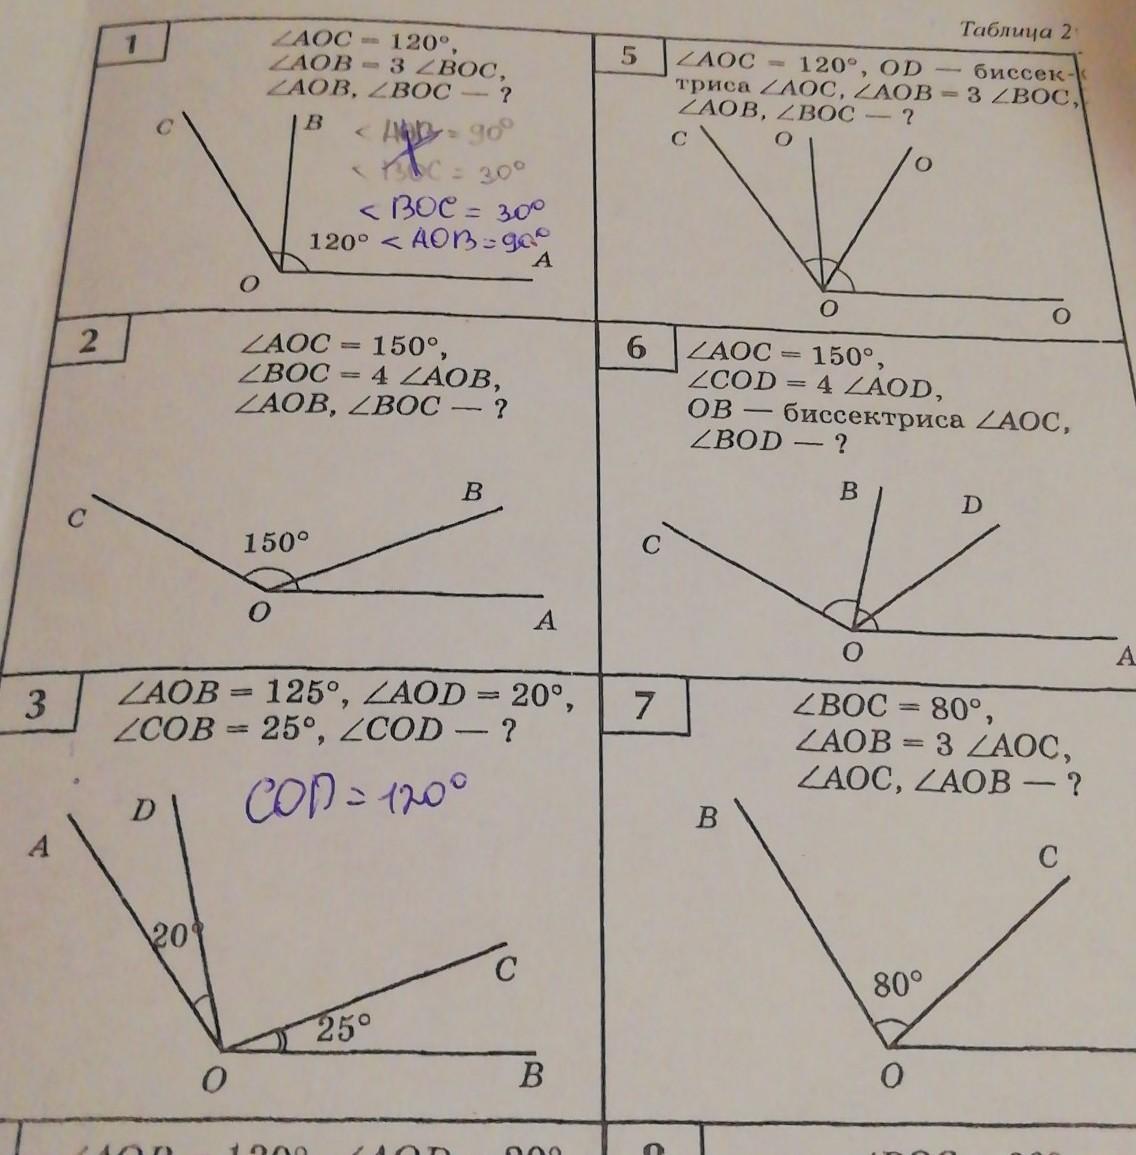 Таблица 2
1
∠AOC = 120°,
∠AOB = 3 ∠BOC,
∠AOB, ∠BOC — ?
C
B
< AOB = 90°
< BOC = 30°
< BOC = 30°
120° < AOB = 90°
A
O
5
∠AOC = 120°, OD — биссек-
триса ∠AOC, ∠AOB = 3 ∠BOC,
∠AOB, ∠BOC — ?
C
O
O
O
O
2
∠AOC = 150°,
∠BOC = 4 ∠AOB,
∠AOB, ∠BOC — ?
C
B
150°
O
A
6
∠AOC = 150°,
∠COD = 4 ∠AOD,
OB — биссектриса ∠AOC,
∠BOD — ?
B
D
C
O
A
3
∠AOB = 125°, ∠AOD = 20°,
∠COB = 25°, ∠COD — ?
COD = 120°
D
A
20°
C
25°
O
B
7
∠BOC = 80°,
∠AOB = 3 ∠AOC,
∠AOC, ∠AOB — ?
B
C
80°
O